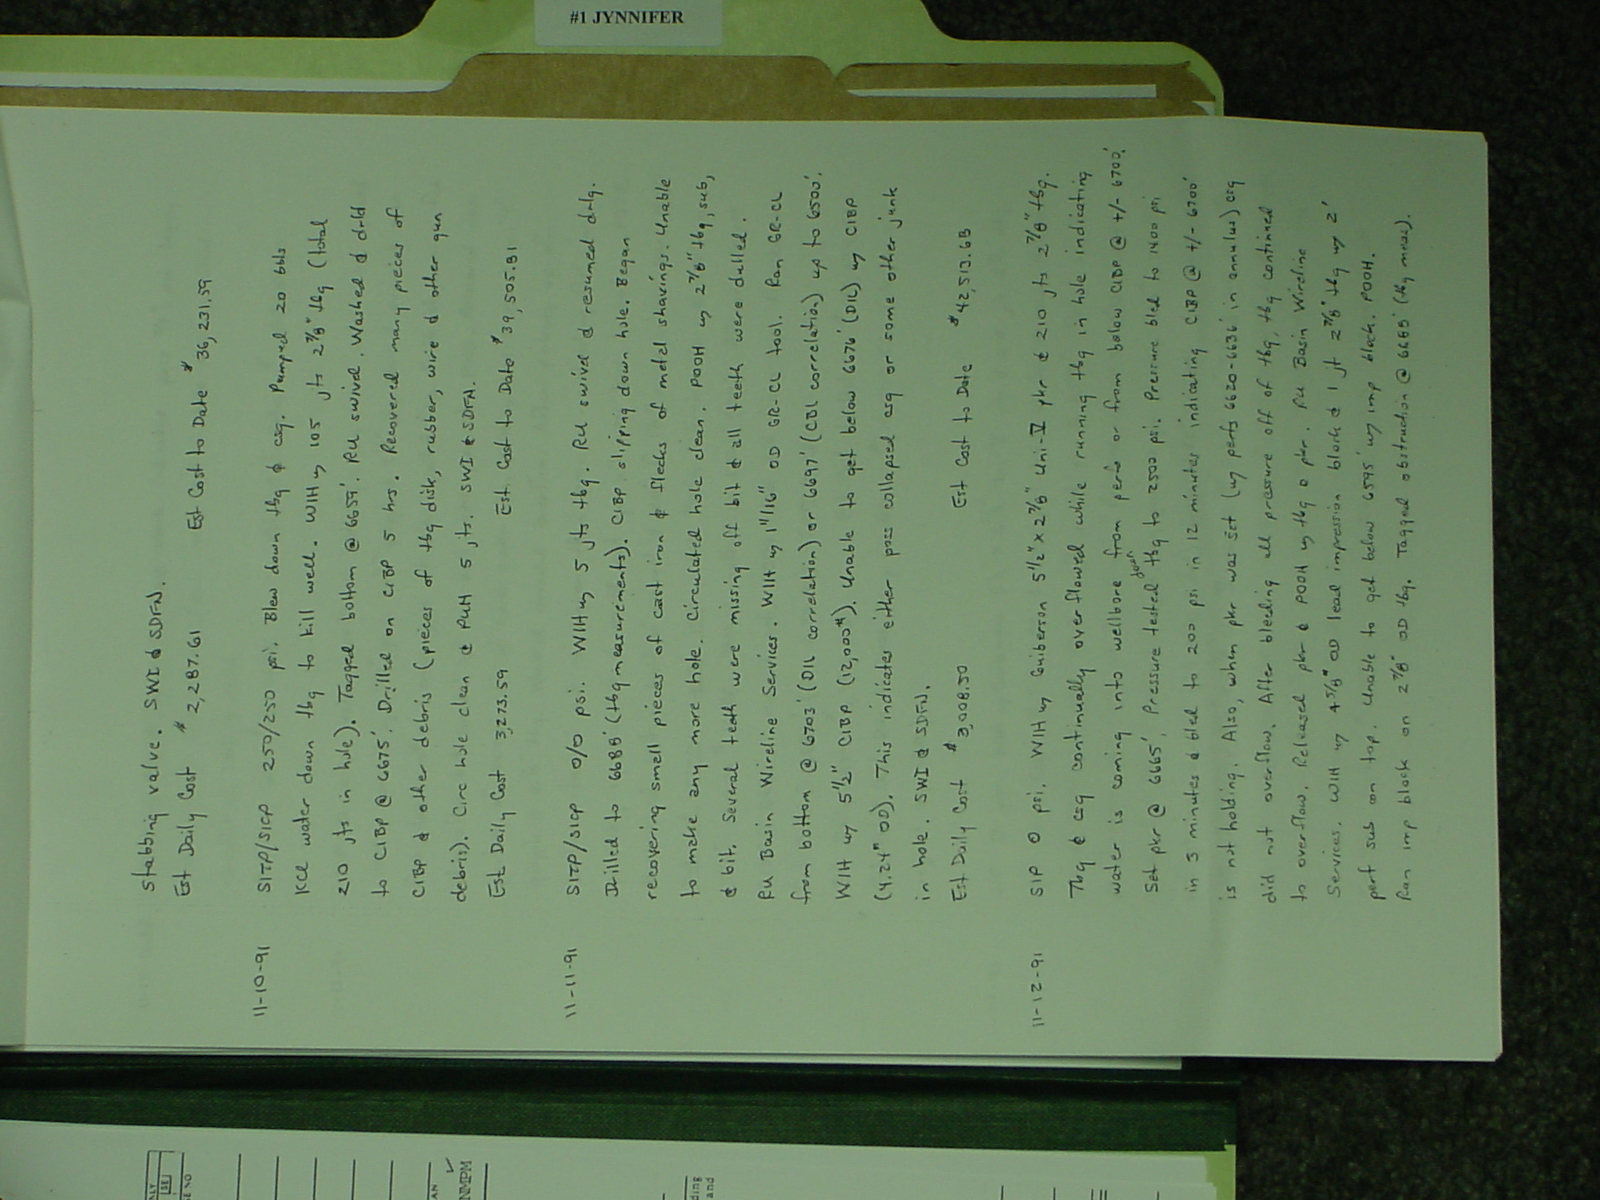 #1 JYNNIFER
stabbing valve. SWI & SDFN.
Est Daily Cost $2,287.61 Est Cost to Date $36,231.59
11-10-91 SITP/SICP 250/250 psi. Blew down tbg & csg. Pumped 20 bbls
KCL water down tbg to kill well. WIH w/ 105 jts 2 7/8" tbg (total
210 jts in hole). Tagged bottom @ 6659'. RU swivel. Washed & drld
to CIBP @ 6675'. Drilled on CIBP 5 hrs. Recovered many pieces of
CIBP & other debris (pieces of tbg disk, rubber, wire & other gun
debris). Circ hole clean & PUH 5 jts. SWI & SDFN.
Est Daily Cost 3,273.59 Est. Cost to Date $39,505.81
11-11-91 SITP/SICP 0/0 psi. WIH w/ 5 jts tbg. RU swivel & resumed drlg.
Drilled to 6688' (tbg measurements). CIBP slipping down hole. Began
recovering small pieces of cast iron & flecks of metal shavings. Unable
to make any more hole. Circulated hole clean. POOH w/ 2 7/8" tbg, sub,
& bit. Several teeth were missing off bit & all teeth were dulled.
RU Basin Wireline Services. WIH w/ 1 11/16" OD GR-CL tool. Ran GR-CL
from bottom @ 6703' (DIL correlation) or 6697' (CBL correlation) up to 6500'.
WIH w/ 5 1/2" CIBP (12,000#). Unable to get below 6676' (DIL) w/ CIBP
(4.24" OD). This indicates either poss collapsed csg or some other junk
in hole. SWI & SDFN.
Est Daily Cost $3,008.50 Est Cost to Date $42,513.68
11-12-91 SIP 0 psi. WIH w/ Guiberson 5 1/2" x 2 7/8" Uni-V pkr & 210 jts 2 7/8" tbg.
Tbg & csg continually overflowed while running tbg in hole indicating
water is coming into wellbore from perfs or from below CIBP @ +/- 6700'.
Set pkr @ 6665'. Pressure tested down tbg to 2500 psi. Pressure bled to 1400 psi
in 3 minutes & bled to 200 psi in 12 minutes indicating CIBP @ +/- 6700'
is not holding. Also, when pkr was set (w/ perfs 6620-6636' in annulus) csg
did not overflow. After bleeding all pressure off of tbg, tbg continued
to overflow. Released pkr & POOH w/ tbg & pkr. RU Basin Wireline
Services. WIH w/ 4 5/8" OD lead impression block & 1 jt 2 7/8" tbg w/ 2'
perf sub on top. Unable to get below 6595' w/ imp block. POOH.
Ran imp block on 2 7/8" OD tbg. Tagged obstruction @ 6688' (tbg meas).